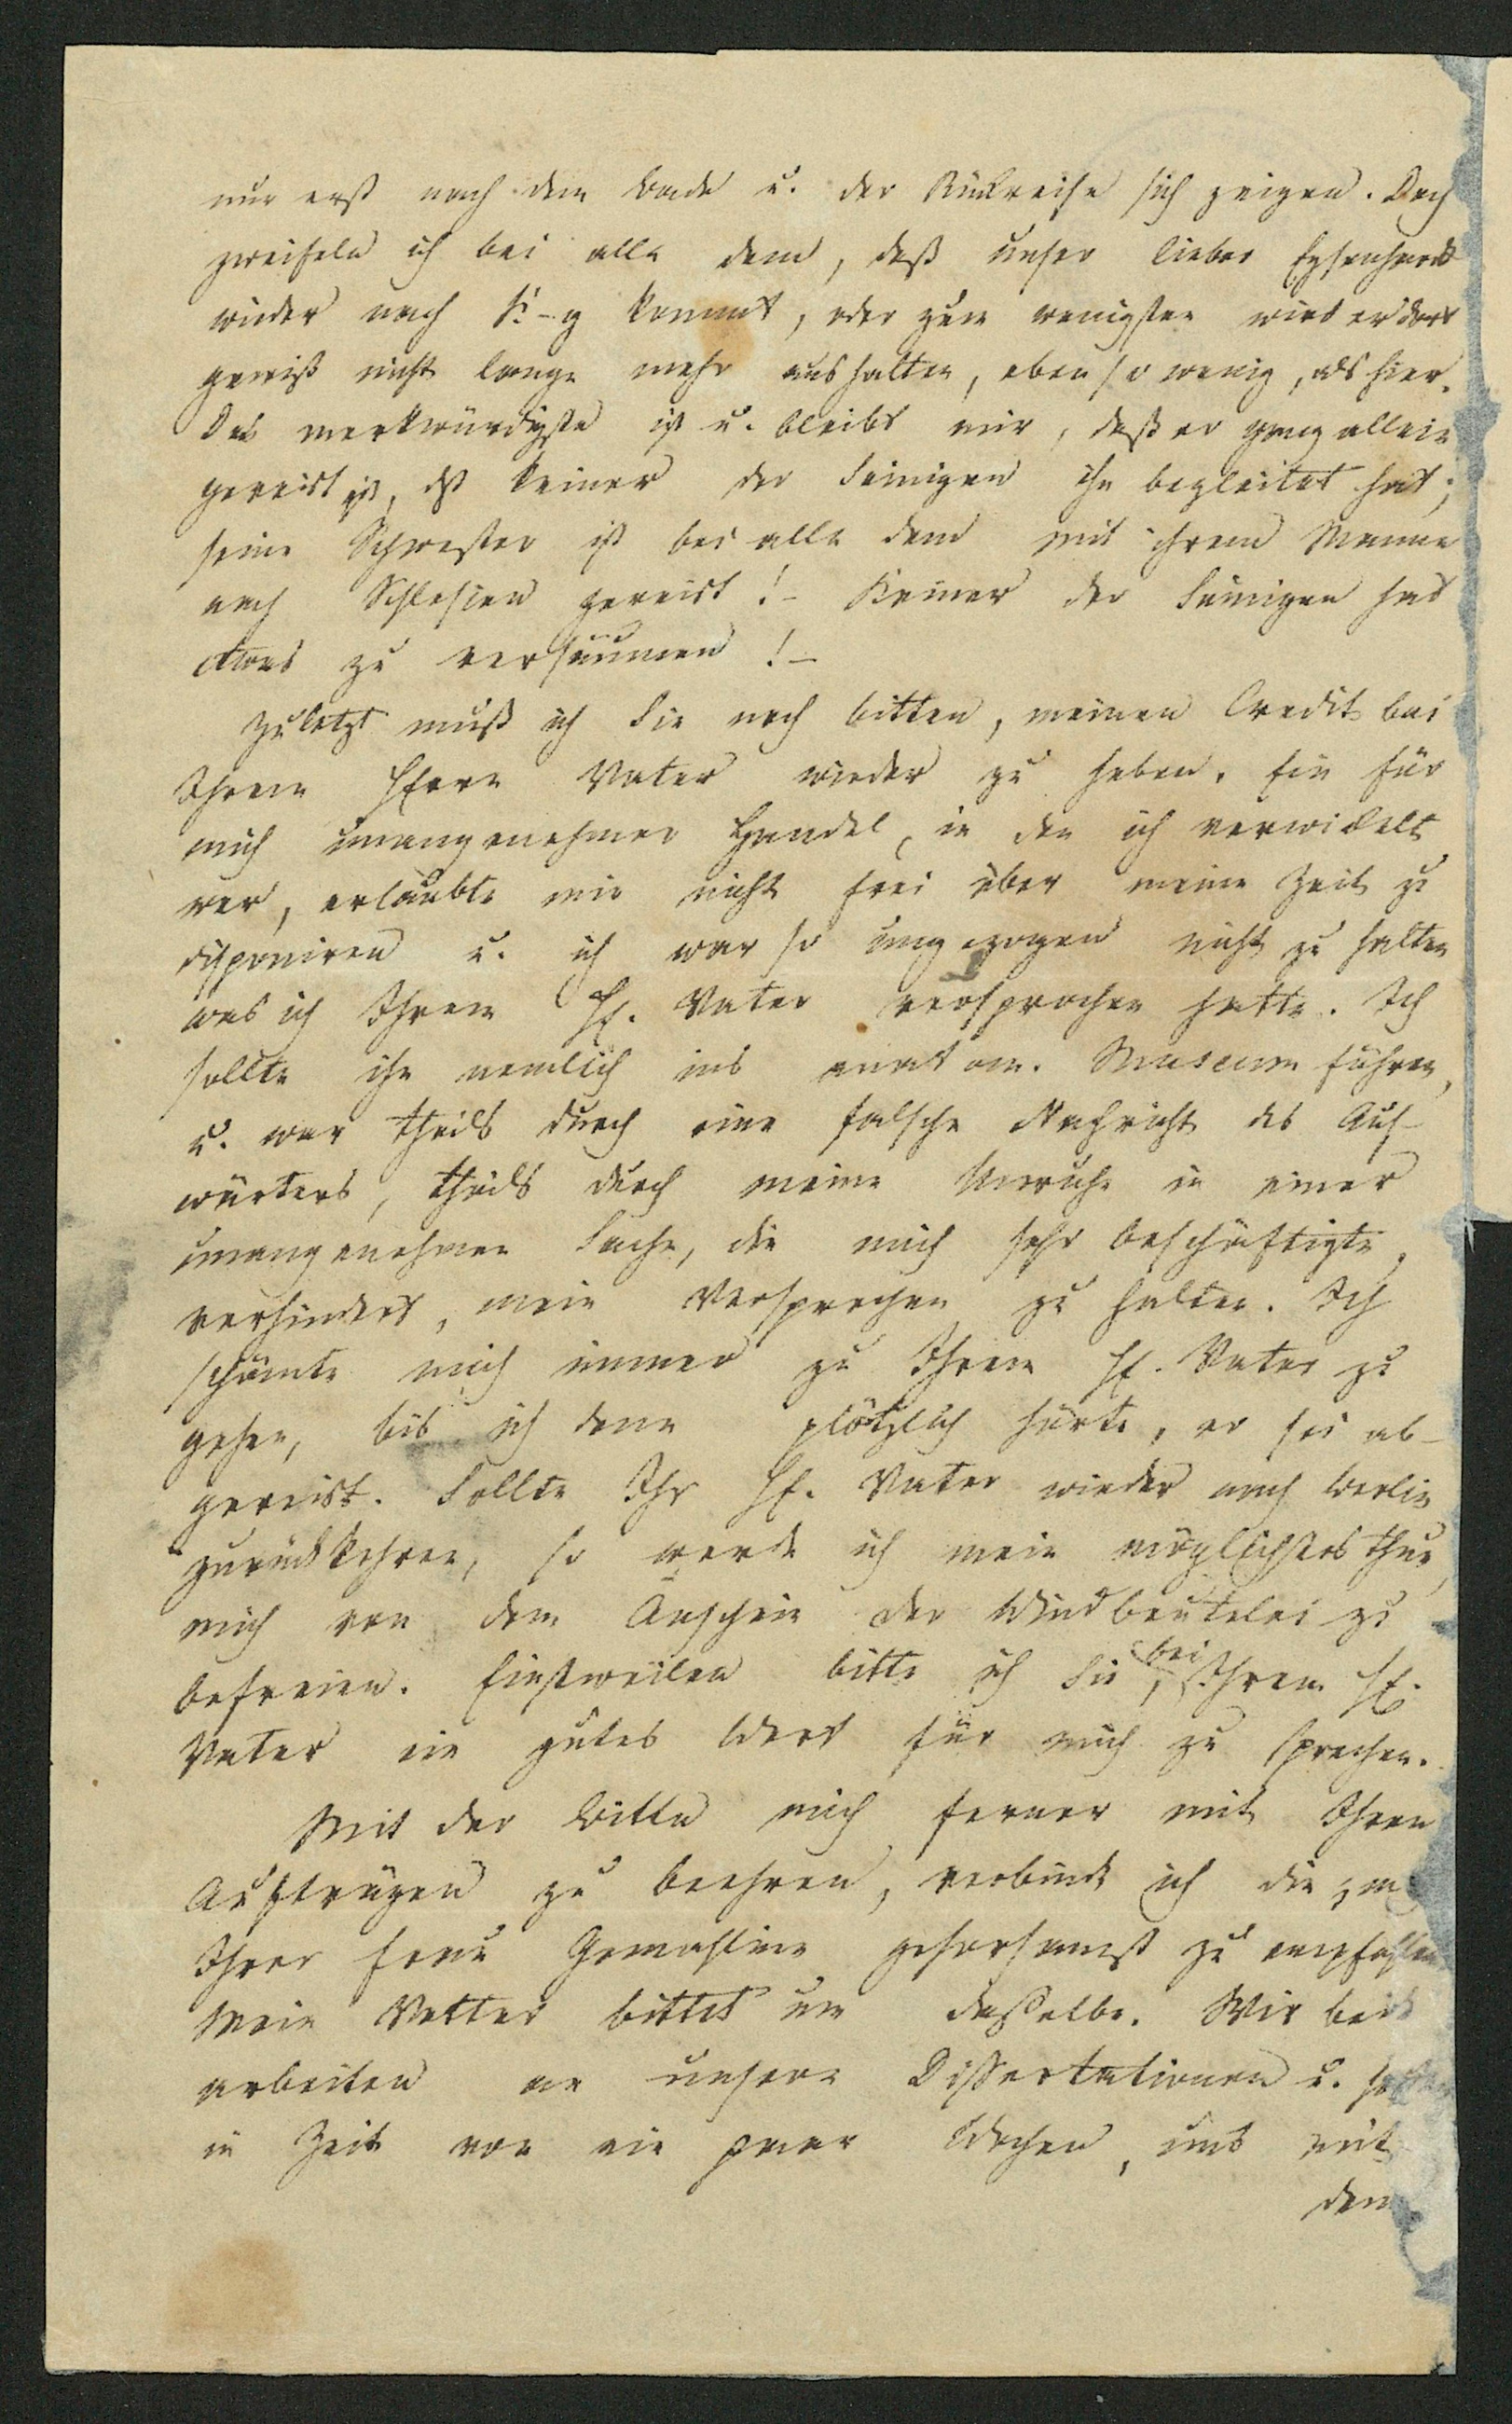 nur erst nach dem Bade u. der Rückreise sich zeigen. Doch
zweifeln ich bei alle dem, daß unser lieber Eysenhardt
wieder nach K-g kommt, oder zum wenigsten wird er dort
gewiß nicht lange mehr aushalten, eben so wenig, als hier.
Das merkwürdigste ist u. bleibt mir, daß er ganz allein
gereist ist, dß keiner der Seinigen ihn begleitet hat;
seine Schwester ist bei alle dem mit ihrem Manne
nach Schlesien gereist! – Keiner der Seinigen hat
etwas zu versäumen! –
Zuletzt muß ich Sie noch bitten, meinen Credit bei
Ihrem Herrn Vater wieder zu heben. Ein für
mich unangenehmer Handel, in den ich verwickelt
war, erlaubte mir nicht frei über meine Zeit zu
disponiren u. ich war so ungezogen nicht zu halten
was ich Ihrem Hr. Vater versprochen hatte. Ich
sollte ihn nemlich ins anatom. Museum führen,
u. war theils durch eine falsche Nachricht des Auf-
wärters, theils durch meine Unruhe in einer
unangenehmen Sache, die mich sehr beschäftigte,
verhindert, mein Versprechen zu halten. Ich
schämte mich immer zu Ihrem Hr. Vater zu
gehen, bis ich denn plötzlich hörte, er sei ab-
gereist. Sollte Ihr Hr. Vater wieder nach Berlin
zurückkehren, so werde ich mein möglichstes thun,
mich von dem Anschein der Windbeutelei zu
befreien. Einstweilen bitte ich Sie, bei Ihrem Hr.
Vater ein gutes Wort für mich zu sprechen.
Mit der Bitte mich ferner mit Ihren
Aufträgen zu beehren, verbinde ich die, m
Ihrer Frau Gemahlinn gehorsamst zu empfehlen
Mein Vetter bittet um dasselbe. Wir beide
arbeiten an unsern Dissertationen u. hoffen
in Zeit von ein paar Wochen, uns mit
dem